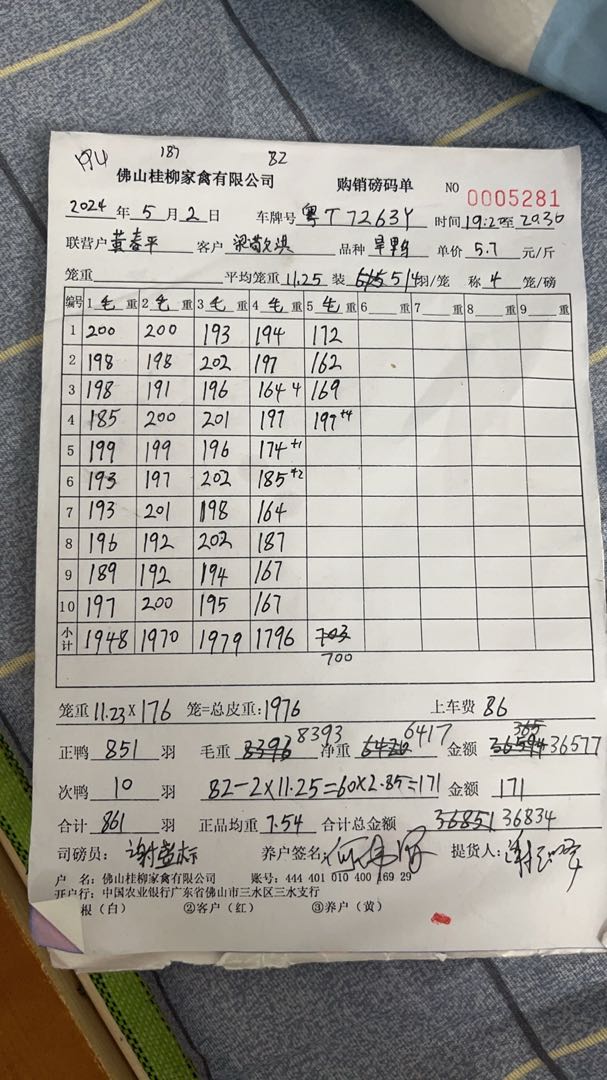 194 187 82
佛山桂柳家禽有限公司 购销磅码单 NO 0005281
2024 年 5 月 2 日 车牌号 粤T7263Y 时间 19:20至20:30
联营户 黄春平 客户 梁 品种 旱鸭 单价 5.7 元/斤
笼重 平均笼重 11.25 装 5 5 14羽/笼 称 4 笼/磅
编号 1 毛 重 2 毛 重 3 毛 重 4 毛 重 5 毛 重 6 重 7 重 8 重 9 重
1 200 200 193 194 172
2 198 198 202 197 162
3 198 191 196 164 4 169
4 185 200 201 197 197+4
5 199 199 196 174+1
6 193 197 202 185+2
7 193 201 198 164
8 196 192 202 187
9 189 192 194 167
10 197 200 195 167
小计 1948 1970 1979 1796 703
700
笼重 11.23×176 笼=总皮重: 1976 上车费 86
365
正鸭 851 羽 毛重 8396 8393 净重 6420 6417 金额 36594 36577
次鸭 10 羽 82-2×11.25=60×2.85=171 金额 171
合计 861 羽 正品均重 7.54 合计总金额 36851 36834
司磅员: 谢 标 养户签名: 提货人:
户 名: 佛山桂柳家禽有限公司 账号: 444 401 010 400 169 29
开户行: 中国农业银行广东省佛山市三水区三水支行
根（白） ②客户（红） ③养户（黄）